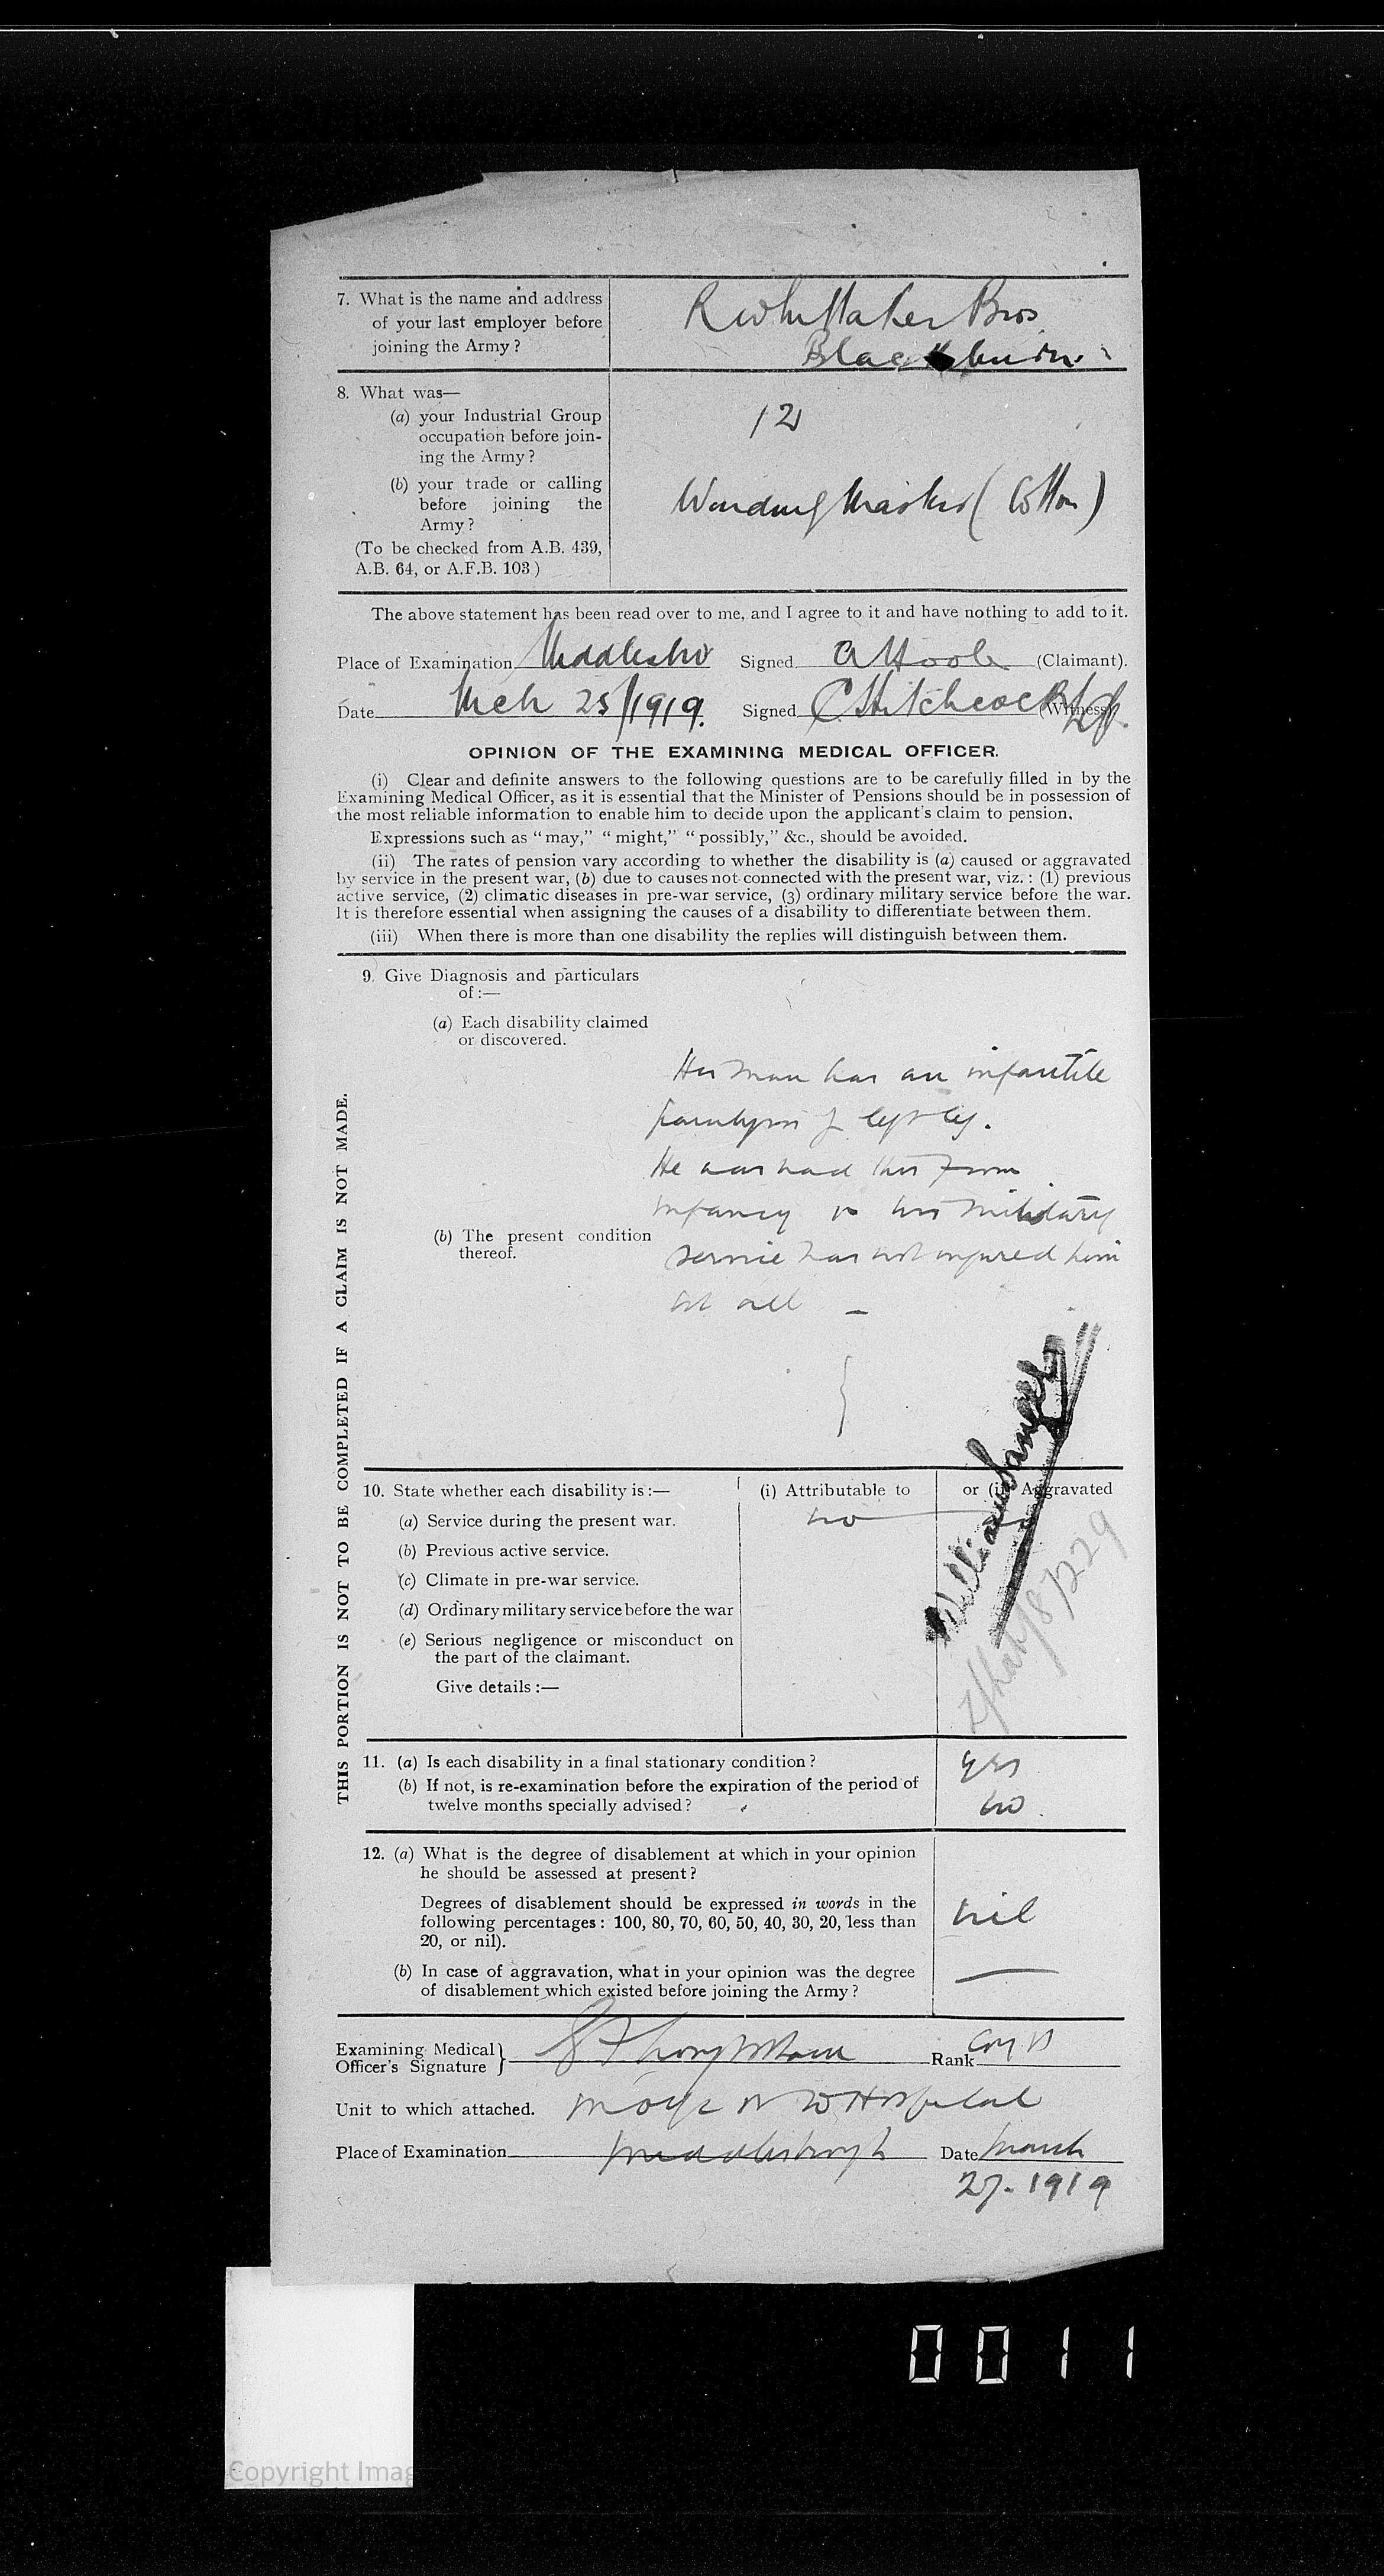 7. What is the name and address
of your last employer before
joining the Army?
R Whittaker Bros
Blackburn.
8. What was—
(a) your Industrial Group
occupation before join-
ing the Army?
12
(b) your trade or calling
before joining the
Army?
Winding Master (Cotton)
(To be checked from A.B. 439,
A.B. 64, or A.F.B. 103)
The above statement has been read over to me, and I agree to it and have nothing to add to it.
Place of Examination Middlesbro Signed A Hoole (Claimant).
Date Mch 25/1919. Signed C Hitchcock (Witness)
OPINION OF THE EXAMINING MEDICAL OFFICER.
(i) Clear and definite answers to the following questions are to be carefully filled in by the
Examining Medical Officer, as it is essential that the Minister of Pensions should be in possession of
the most reliable information to enable him to decide upon the applicant's claim to pension.
Expressions such as "may," "might," "possibly," &c., should be avoided.
(ii) The rates of pension vary according to whether the disability is (a) caused or aggravated
by service in the present war, (b) due to causes not connected with the present war, viz.: (1) previous
active service, (2) climatic diseases in pre-war service, (3) ordinary military service before the war.
It is therefore essential when assigning the causes of a disability to differentiate between them.
(iii) When there is more than one disability the replies will distinguish between them.
THIS PORTION IS NOT TO BE COMPLETED IF A CLAIM IS NOT MADE.
9. Give Diagnosis and particulars
of:—
(a) Each disability claimed
or discovered.
This man has an infantile
paralysis of left leg.
He has had this from
infancy & his military
(b) The present condition
thereof.
service has not injured him
at all —
10. State whether each disability is:— (i) Attributable to or (ii) Aggravated
(a) Service during the present war. no
(b) Previous active service.
(c) Climate in pre-war service.
(d) Ordinary military service before the war
(e) Serious negligence or misconduct on
the part of the claimant.
Give details:—
William Sanger
11. (a) Is each disability in a final stationary condition? yes
(b) If not, is re-examination before the expiration of the period of
twelve months specially advised? no.
12. (a) What is the degree of disablement at which in your opinion
he should be assessed at present?
Degrees of disablement should be expressed in words in the
following percentages: 100, 80, 70, 60, 50, 40, 30, 20, less than
20, or nil). nil
(b) In case of aggravation, what in your opinion was the degree —
of disablement which existed before joining the Army?
Examining Medical
Officer's Signature Rank
Unit to which attached. W Hospital
Place of Examination Middlesbrough Date March
27. 1919
0011
Copyright Imag